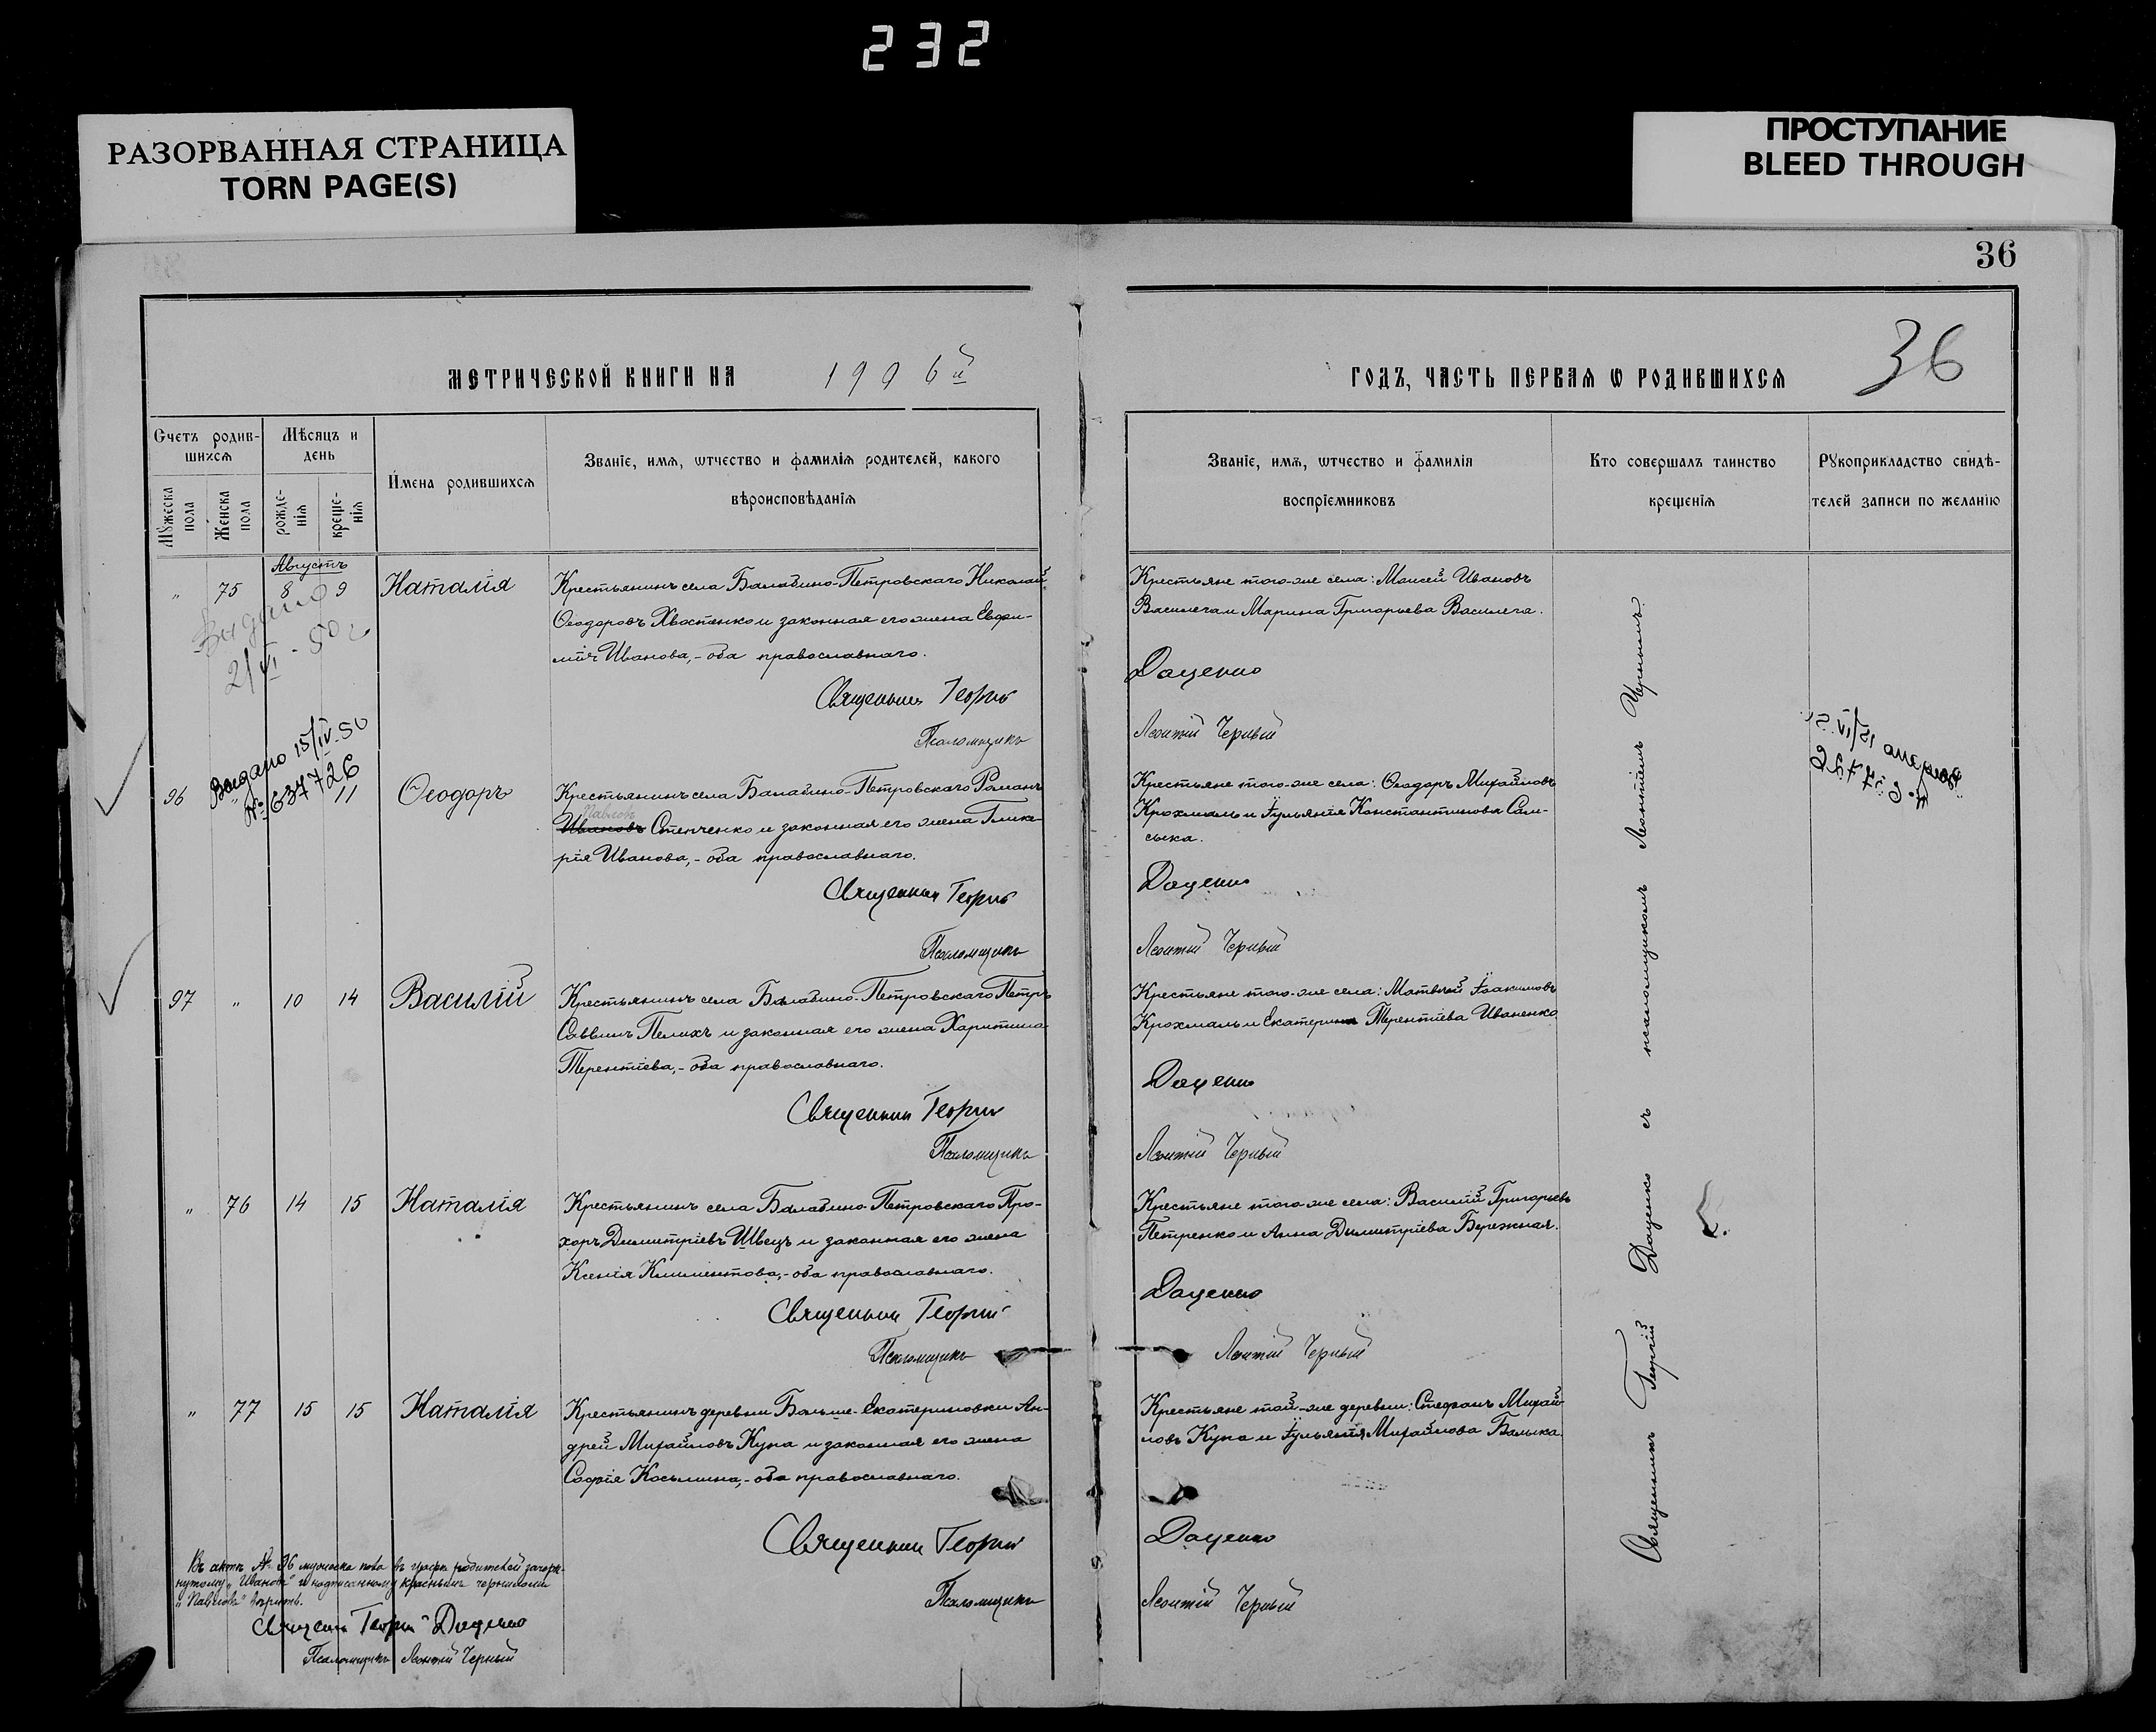 232
РАЗОРВАННАЯ СТРАНИЦА
TORN PAGE(S)
ПРОСТУПАНИЕ
BLEED THROUGH
36
36
МЕТРИЧЕСКОЙ КНИГИ НА 1906й
ГОДЪ, ЧАСТЬ ПЕРВАЯ Ѡ РОДИВШИХСЯ
Счетъ родив-
шихся
Мѣсяцъ и
день
Мужеска пола
Женска пола
рожде-
нія
креще-
нія
Имена родившихся
Званіе, имя, ѡтчество и фамилія родителей, какого
вѣроисповѣданія
Званіе, имя, ѡтчество и фамилія
воспріемниковъ
Кто совершалъ таинство
крещенія
Рукоприкладство свидѣ-
телей записи по желанію
Августъ
" 75 8 9 Наталія
Крестьянинъ села Балабино-Петровскаго Николай
Ѳеодоровъ Хвостенко и законная его жена Евфи-
мія Иванова,- оба православнаго.
Священникъ Георгій
Псаломщикъ
Крестьяне того-же села: Моисей Ивановъ
Василега и Марина Григорьева Василега.
Даценко
Леонтій Черный
Выдано
2/VI-50 г
Выдано 15/IV-50
№ 634726
96 " 11 Ѳеодоръ
Крестьянинъ села Балабино-Петровскаго Романъ
Павловъ
Ивановъ Степченко и законная его жена Глике-
рія Иванова,- оба православнаго.
Священникъ Георгій
Псаломщикъ
Крестьяне того-же села: Ѳеодоръ Михайловъ
Крохмаль и Іульянія Константинова Сам-
сыка.
Даценко
Леонтій Черный
97 " 10 14 Василій
Крестьянинъ села Балабино-Петровскаго Петръ
Саввинъ Пелихъ и законная его жена Харитина
Терентіева,- оба православнаго.
Священникъ Георгій
Псаломщикъ
Крестьяне того-же села: Матвѣй Іоакимовъ
Крохмаль и Екатерина Терентіева Иваненко
Даценко
Леонтій Черный
" 76 14 15 Наталія
Крестьянинъ села Балабино-Петровскаго Про-
хоръ Димитріевъ Швецъ и законная его жена
Ксенія Климентова,- оба православнаго.
Священникъ Георгій
Псаломщикъ
Крестьяне того-же села: Василій Григорьевъ
Петренко и Анна Димитріева Бережная.
Даценко
Леонтій Черный
" 77 15 15 Наталія
Крестьянинъ деревни Больше-Екатериновки Ан-
дрей Михайловъ Купа и законная его жена
Софія Косьмина,- оба православнаго.
Священникъ Георгій
Псаломщикъ
Крестьяне той-же деревни: Стефанъ Михай-
ловъ Купа и Іульянія Михайлова Балыка
Даценко
Леонтій Черный
Священникъ Георгій Даценко съ псаломщикомъ Леонтіемъ Чернымъ.
Въ актѣ № 96 мужеска пола въ графѣ родителей зачерк-
нутому "Ивановъ" и надписанному красными чернилами
"Павловъ" вѣрить.
Священникъ Георгій Даценко
Псаломщикъ Леонтій Черный